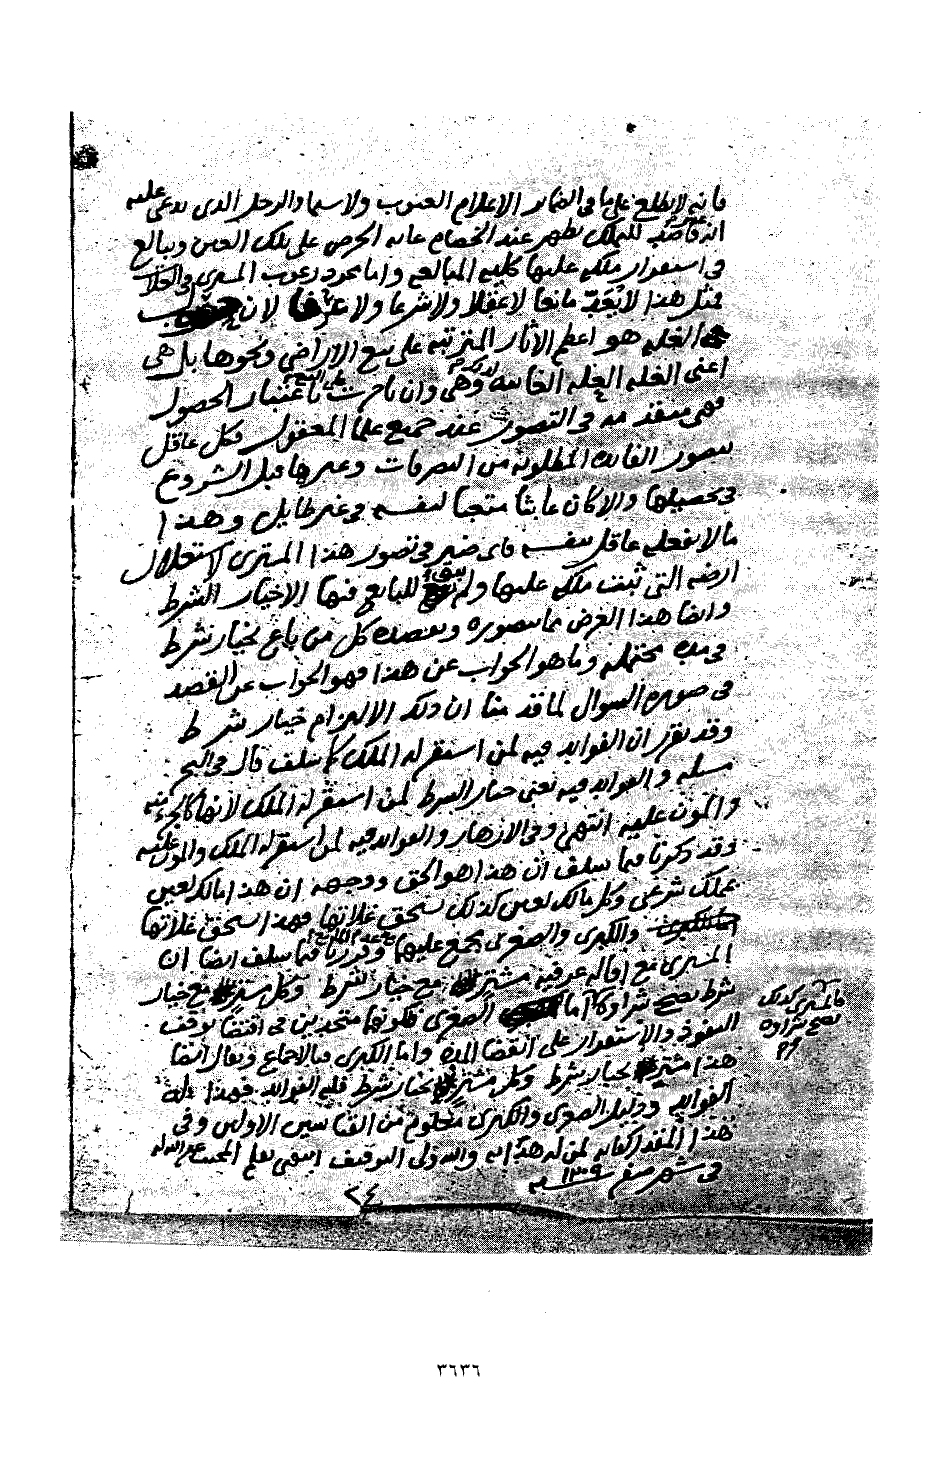 فإنه لا يطلع على ما في الضمائر الا علام الغيوب ولا سيما والرجل الذي يدعى عليه
انه قاصد للتملك يظهر عند الخصام غاية الحرص على تلك العين ويبالغ
في استقرار ملكه عليها كلية المبالغة واما مجرد رغوب المشتري في الغلات
فمثل هذا لا يعد مانعا لا عقلا ولا شرعا ولا عرفا لان
الغلة هو اعظم الاثار المترتبة على بيع الاراضي ونحوها بل هي
اعني الغلة العلة الغائية وهي وان تأخرت باعتبار الحصول
فهي متقدمة في التصور عند جميع علماء المعقول وكل عاقل
يتصور الفائدة المطلوبة من التصرفات وغيرها قبل الشروع
في تحصيلها والا كان عابثا متعبا لنفسه في غير طايل وهذا
ما لا يفعله عاقل بنفسه فاي ضير في تصور هذا المشتري لاستغلال
ارضه التي ثبت ملكه عليها ولم يبق للبائع فيها الا خيار الشرط
وايضا هذا الغرض مما يتصوره ويقصده كل من باع بخيار شرط
في مدة وما هو الجواب عن هذا فهو الجواب عن القصد
في صورة السوال لما قدمنا ان ذلك الالتزام خيار شرط
وقد تقرر ان الفوائد فيه لمن استقر له الملك كما سلف قال في البحر
مسئلة والفوائد فيه يعني خيار الشرط لمن استقر له الملك لانها كالجزء منه
والمؤن عليه انتهى وفي الازهار والفوائد فيه لمن استقر له الملك والمؤن عليه
وقد ذكرنا فيما سلف ان هذا هو الحق ووجهه ان هذا مالك لعين
بملك شرعي وكل مالك لعين كذلك يستحق غلاتها فهذا يستحق غلاتها
والكبرى والصغرى مجمع عليها وقررنا فيما سلف ايضا ان
المشتري مع اقالة عرفية مشتر مع خيار شرط وكل مشتر مع خيار
شرط يصح شراؤه اما الصغرى فلكونها متحدين في اقتضا توقف
النفوذ والاستقرار على انقضا المدة واما الكبرى فبالاجماع ويقال ايضا
هذا مشتر بخيار شرط وكل مشتر بخيار شرط فله الفوائد فهذا له
الفوائد ودليل الصغرى والكبرى معلوم من القياسين الاولين وفي
هذا المقدار كفاية لمن له هداية والله ولي التوفيق انتهى بقلم المجيب غفر الله له
في شهر صفر سنة ١٢٠٩
فالمشتري كذلك
يصح شراؤه
٢٤
٣٦٣٦